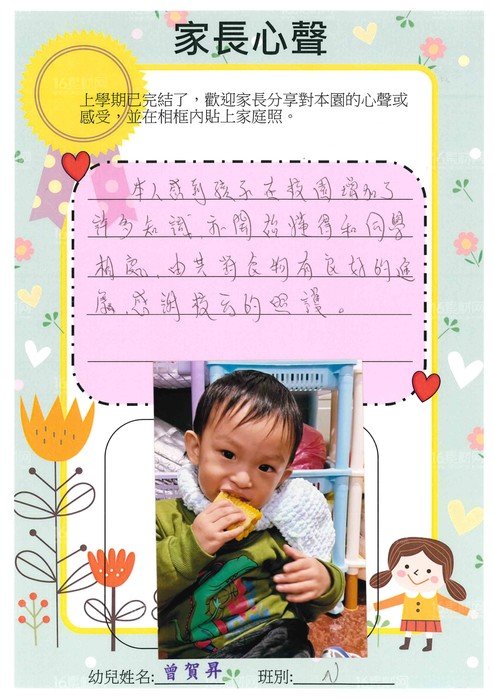 家長心聲
上學期已完結了，歡迎家長分享對本園的心聲或
感受，並在相框內貼上家庭照。
本人感到孩子在校園增加了
許多知識，亦開始懂得和同學
相處，尤其對食物有良好的進
展，感謝校方的照護。
幼兒姓名: 曾賀昇 班別: N